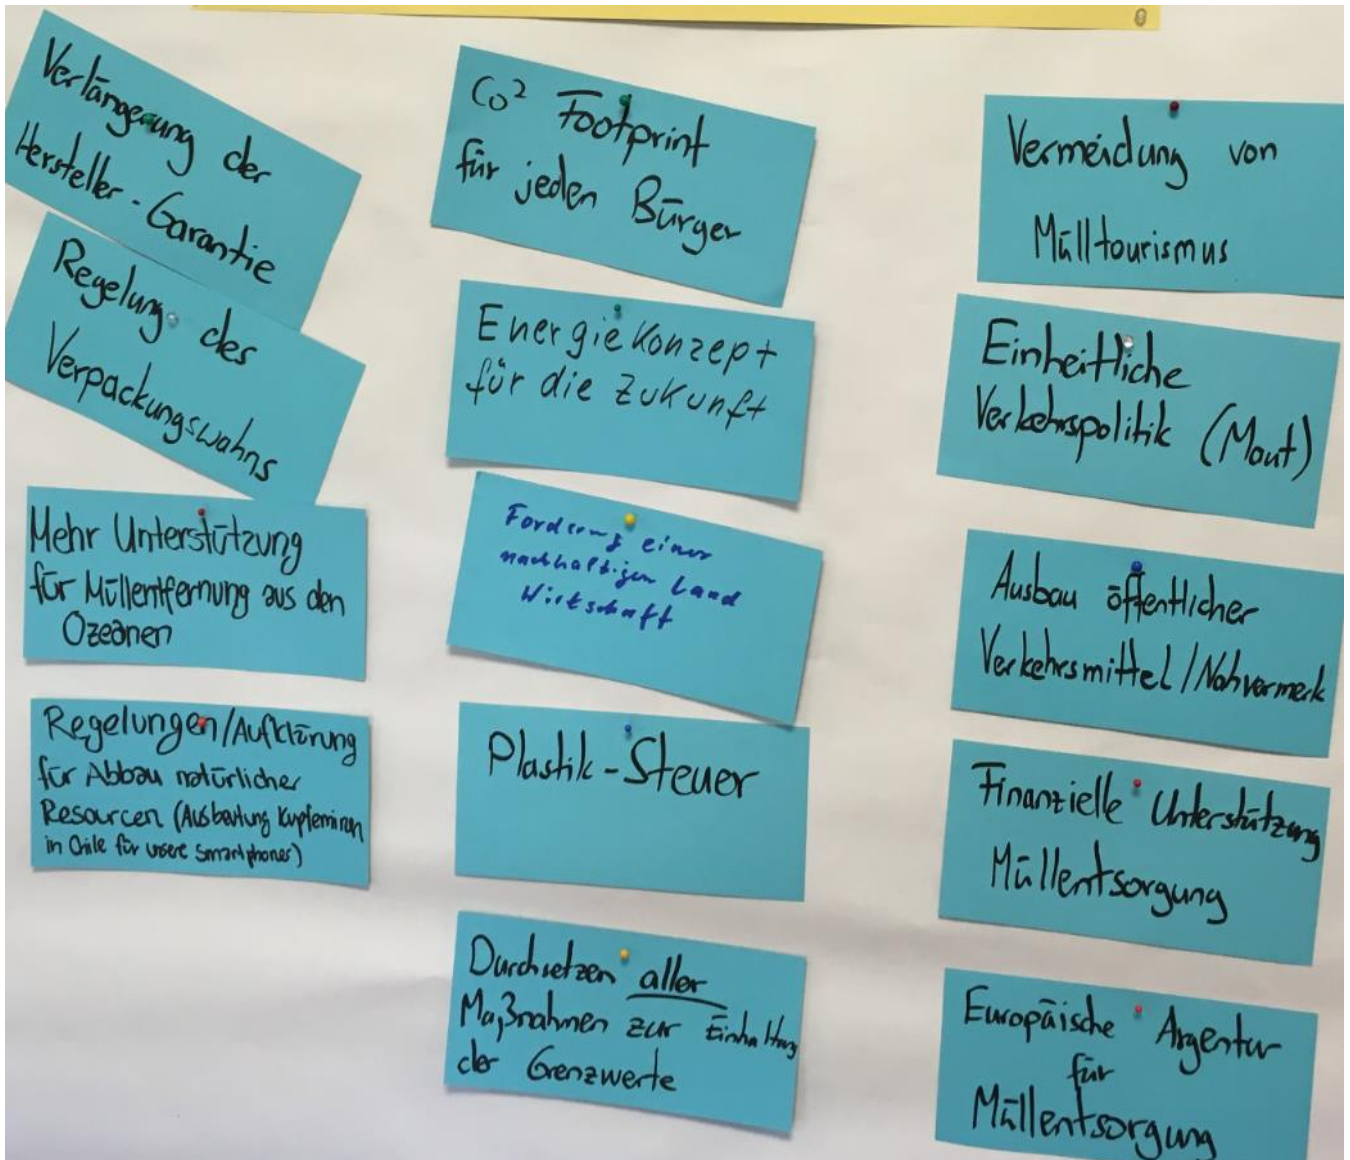 Verlängerung der
Hersteller-Garantie
Regelung des
Verpackungswahns
Mehr Unterstützung
für Müllentfernung aus den
Ozeanen
Regelungen/Aufklärung
für Abbau natürlicher
Resourcen (Ausbeutung Kupferminen
in Chile für unsere Smartphones)
Co² Footprint
für jeden Bürger
Energiekonzept
für die Zukunft
Förderung einer
nachhaltigen Land
Wirtschaft
Plastik-Steuer
Durchsetzen aller
Maßnahmen zur Einhaltung
der Grenzwerte
Vermeidung von
Mülltourismus
Einheitliche
Verkehrspolitik (Maut)
Ausbau öffentlicher
Verkehrsmittel/Nahvermerk
Finanzielle Unterstützung
Müllentsorgung
Europäische Argentur
für
Müllentsorgung